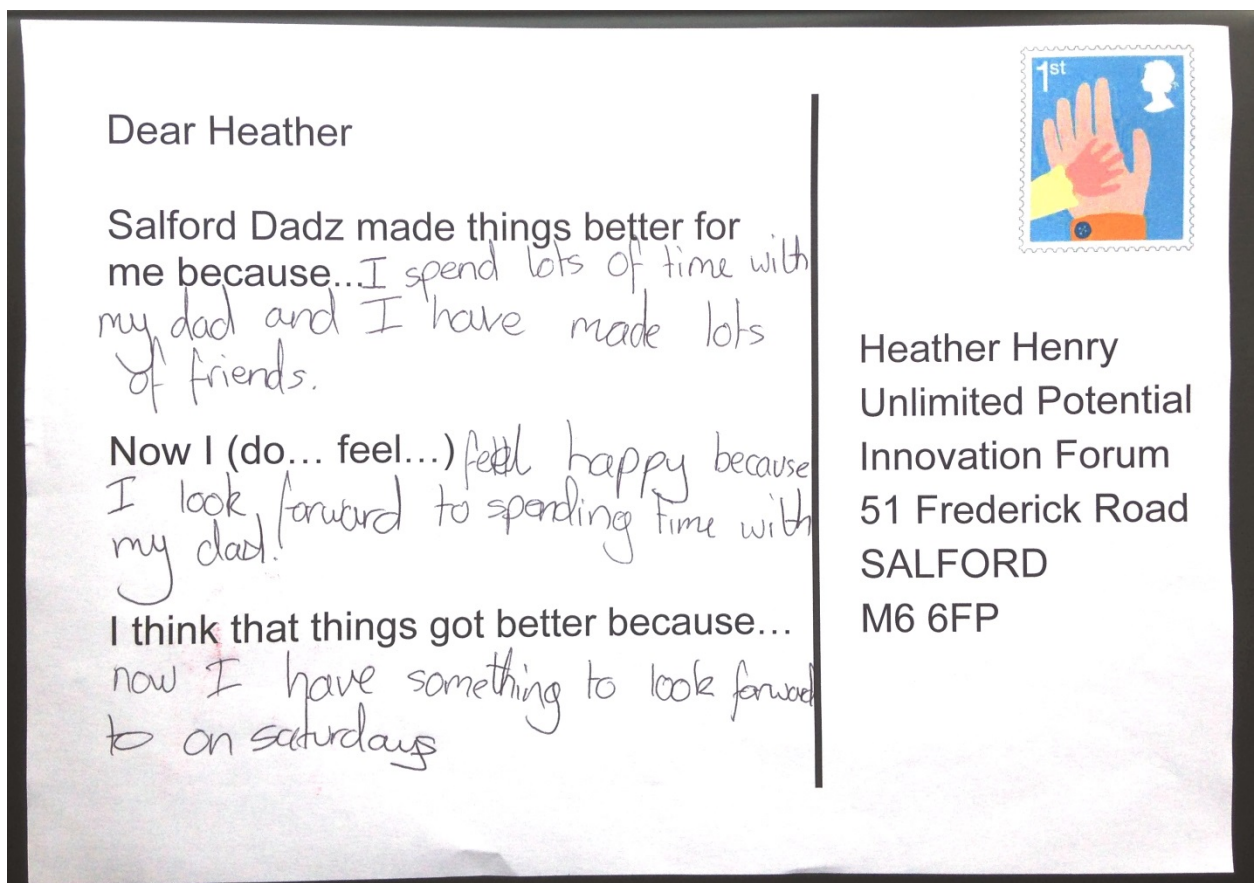 Dear Heather
Salford Dadz made things better for
me because...I spend lots of time with
my dad and I have made lots
of friends.
Now I (do... feel...) feel happy because
I look forward to spending time with
my dad.
I think that things got better because...
now I have something to look forward
to on saturdays
1st
Heather Henry
Unlimited Potential
Innovation Forum
51 Frederick Road
SALFORD
M6 6FP